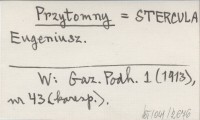 Przytomny = STERCULA
Eugeniusz.
W: Gaz. Podh. 1 (1913),
nr 43 (koresp.).